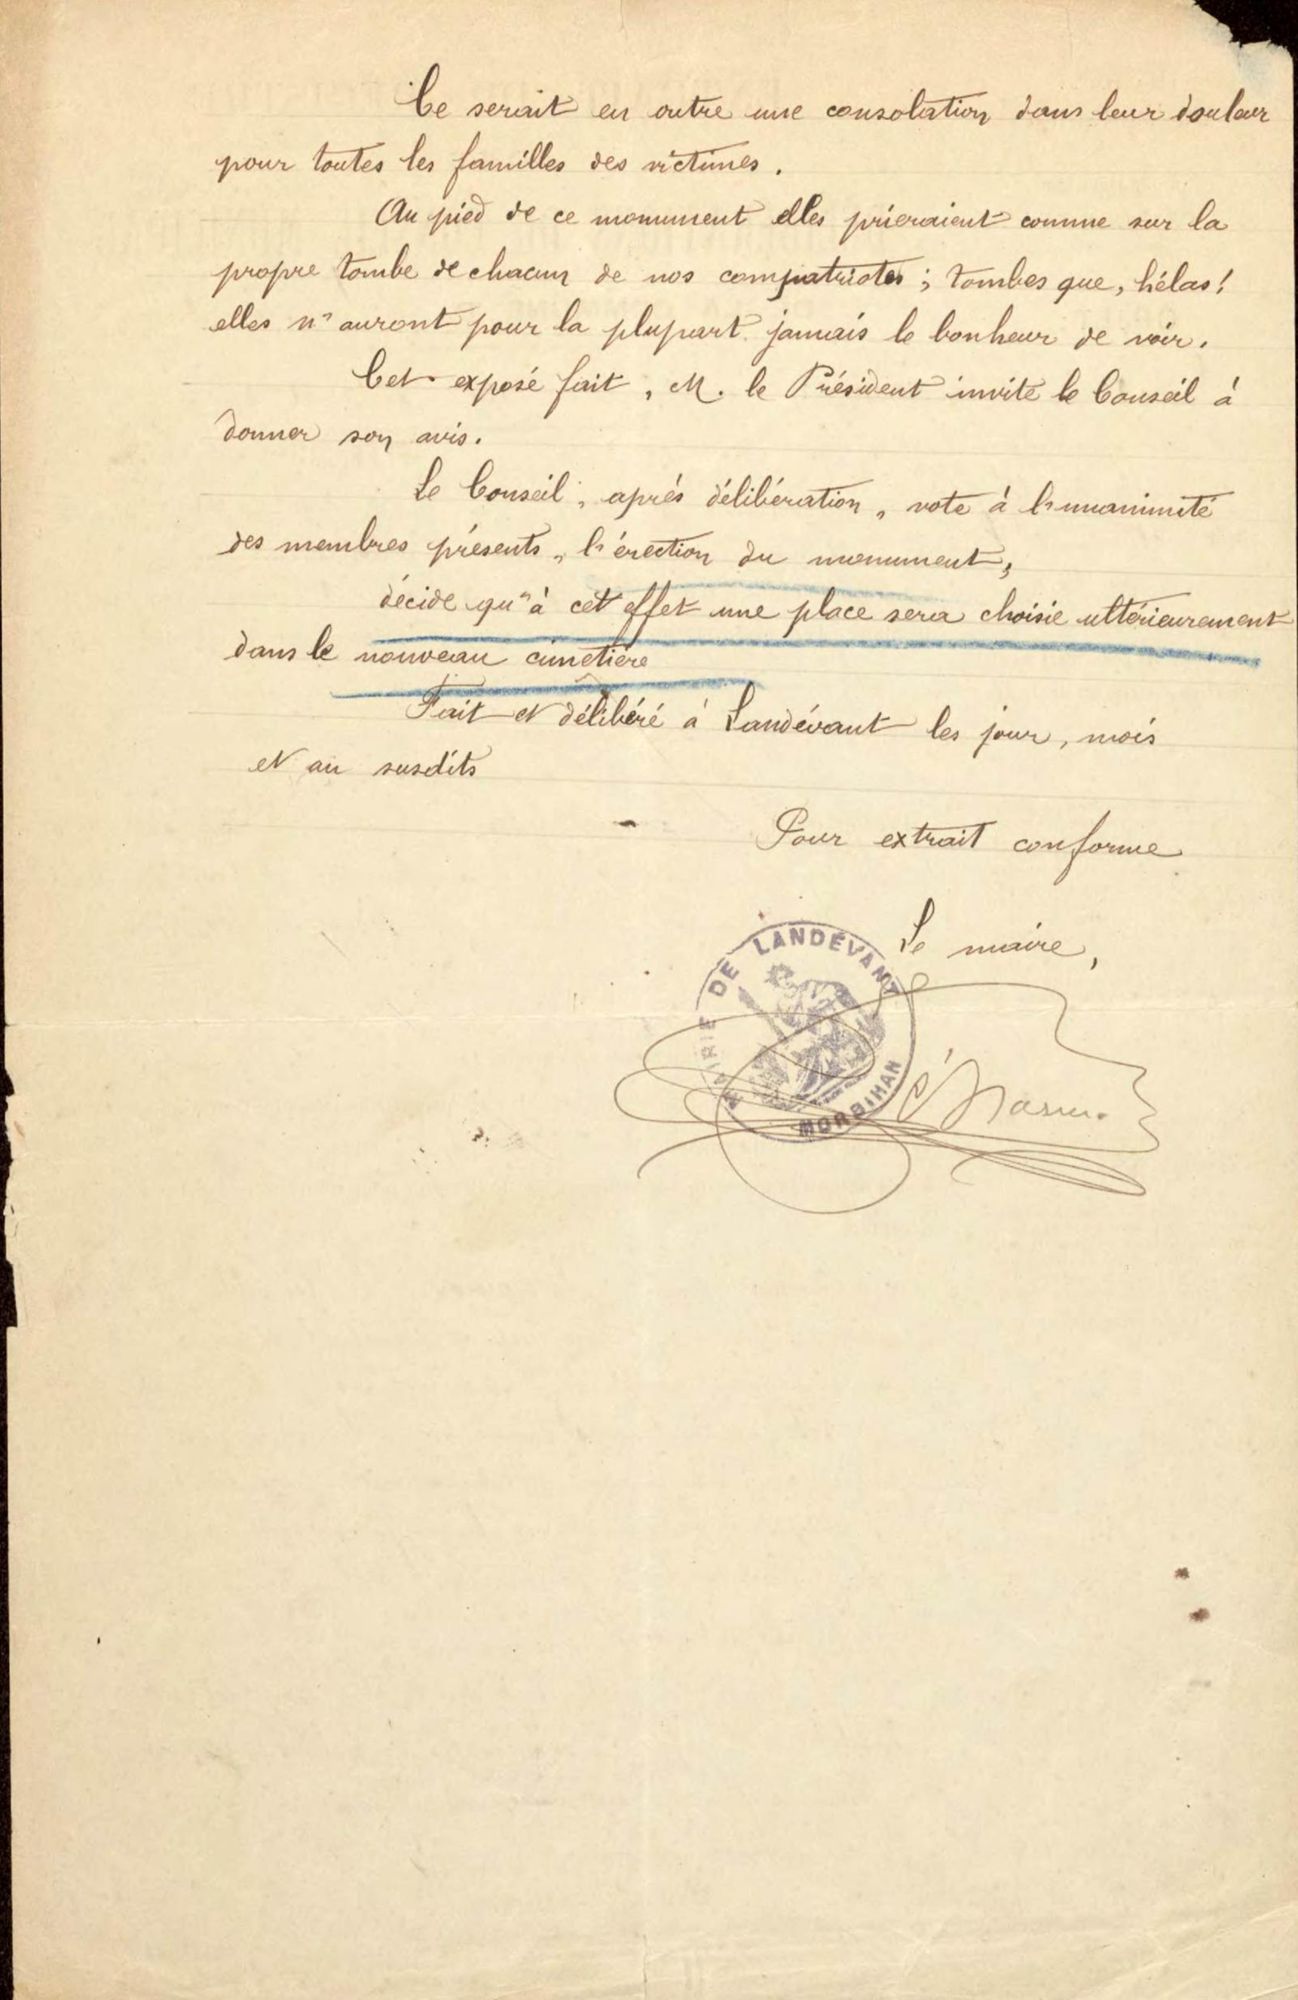 Ce serait en outre une consolation dans leur douleur
pour toutes les familles des victimes.
Au pied de ce monument elles prieraient comme sur la
propre tombe de chacun de nos compatriotes ; tombes que, hélas !
elles n'auront pour la plupart jamais le bonheur de voir.
Cet exposé fait, M. le Président invite le Conseil à
donner son avis.
Le Conseil, après délibération, vote à l'unanimité
des membres présents, l'érection du monument,
décide qu'à cet effet une place sera choisie ultérieurement
dans le nouveau cimetière
Fait et délibéré à Landévant les jour, mois
et an susdits
Pour extrait conforme
Le maire,
MAIRIE DE LANDÉVANT
MORBIHAN